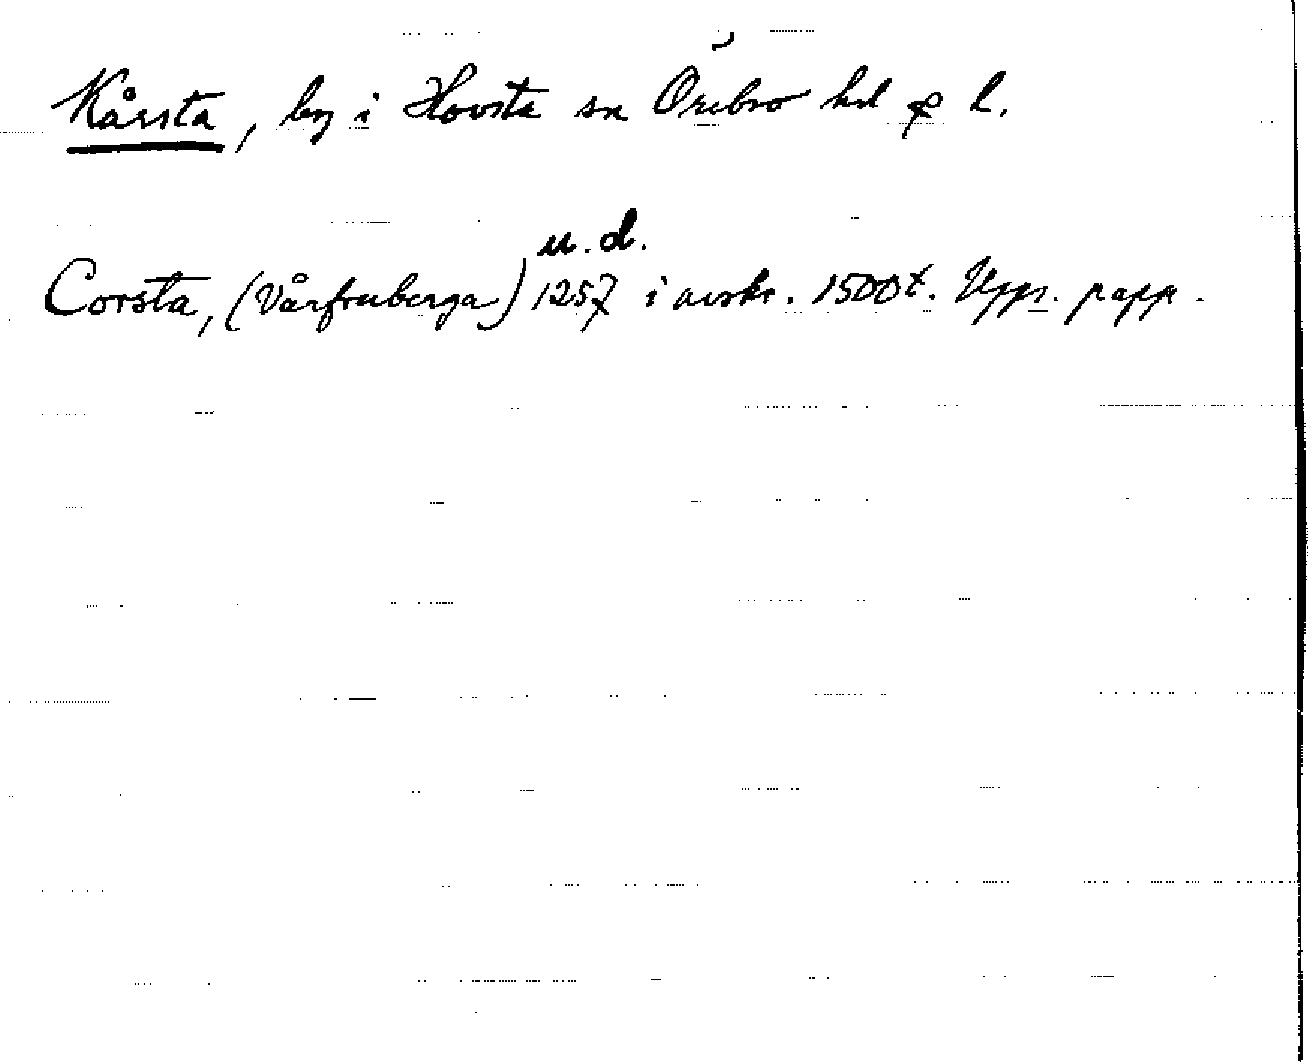 Kårsta, by i Hovsta sn Örebro hd & l.
u.d.
Corsta, (Vårfruberga) 1257 i avskr. 1500t. Upps. papp.